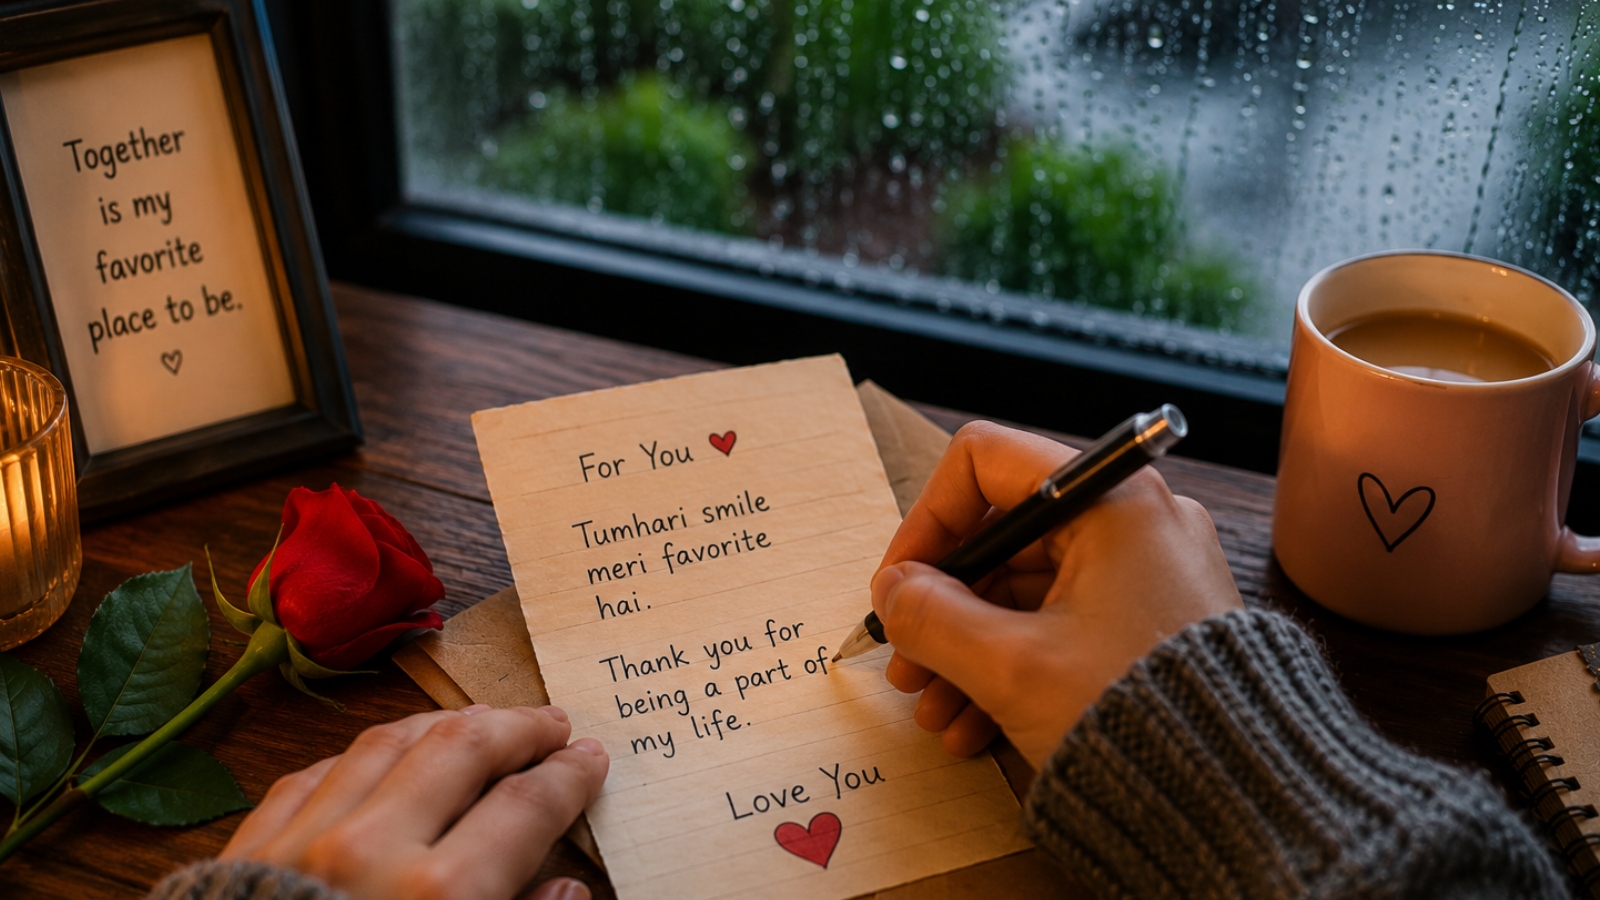 Together
is my
favorite
place to be.
For You
Tumhari smile
meri favorite
hai.
Thank you for
being a part of
my life.
Love You